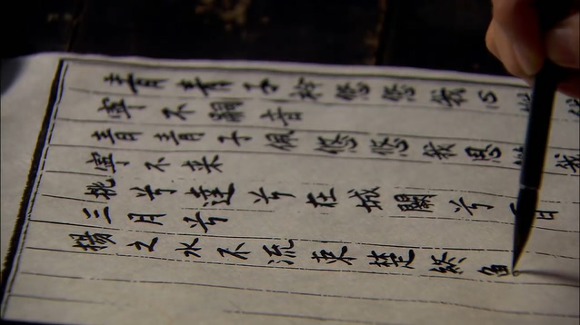 青青子衿悠悠我心
寧不嗣音
青青子佩悠悠我思
寧不来
挑兮達兮在城闕兮一日
三月兮
揚之水不流束楚終